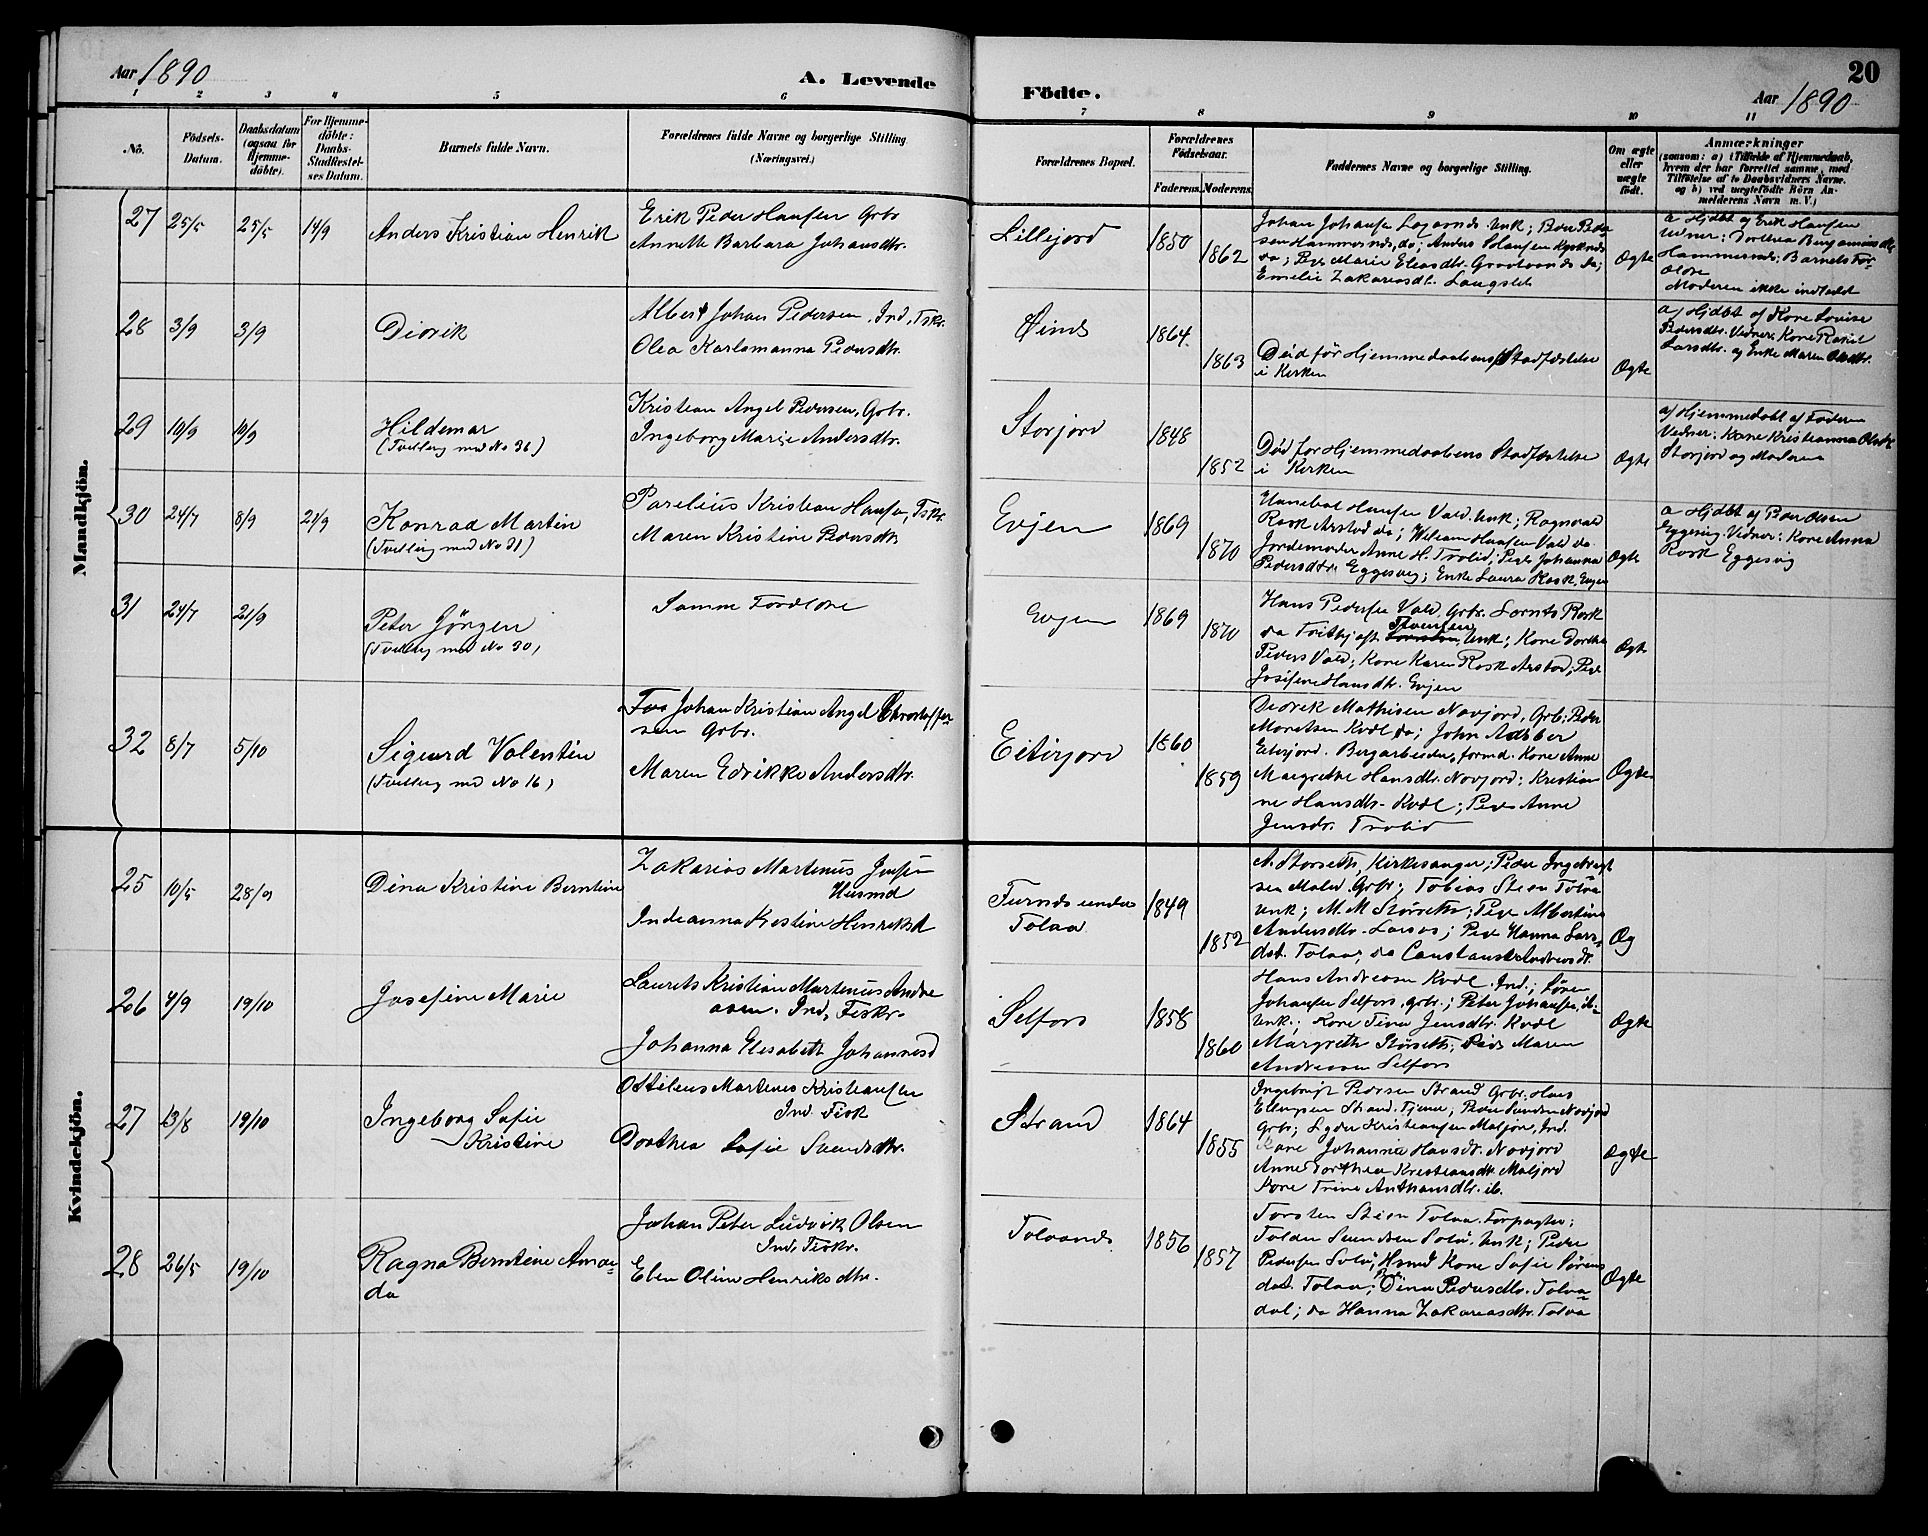 Aar 1890
A. Levende
Födte.
Aar 1890
20
1 2 3 4 5 6 7 8 9 10 11
No.
Födsels-
Datum.
Daabsdatum
(ogsaa for
Hjemme-
döbte).
For Hjemme-
döbte:
Daabs-
Stadfæstel-
ses Datum.
Barnets fulde Navn.
Forældrenes fulde Navne og borgerlige Stilling
(Næringsvei.)
Forældrenes Bopæl.
Forældrenes
Födselsaar.
Faderens. Moderens.
Faddernes Navne og borgerlige Stilling.
Om ægte
eller
uægte
födt.
Anmærkninger
(saasom: a) i Tilfælde af Hjemmedaab,
hvem der har forrettet samme, med
Tilföielse af to Daabsvidners Navne.
og b) ved uægtefödte Börn An-
melderens Navn m. V.)
Mandkjön.
27 25/5 25/5 14/9 Anders Kristian Henrik
Erik Peder Hansen Grbr
Annette Barbara Johansdtr.
Lillejord 1850
1862
Johan Johansen
Emelie Zakariasdtr.
Ægte
a Hjdbt af Erik Hansen
Vidner: Dorthea Benjaminsdtr
Hammernes; Barnets For-
ældre
Moderen ikke indledet
28 3/9 3/9 Didrik
Albert Johan Pedersen, Ind, Fskr.
Olea Karlsmanna Pedersdtr.
Øines 1864.
1863
Död för Hjemmedaabens Stadfæstelse
i Kirken
Ægte
a/ Hjdbt af Kone Lovise
Pedersdtr. Vidner: Kone Rakel
Larsdtr. og Enke Maren Olsdtr.
29 10/9 10/9 Hildemar
(Tvilling med No 36)
Kristian Angel Pedersen, Grbr.
Ingeborg Marie Andersdtr.
Storjord 1848
1852
Död for Hjemmedaabens Stadfæstelse
i Kirken
Ægte
a/ Hjemmedøbt af Faderen
Vidner: Kone Kristianna Olsdtr
Storjord og Moderen
30 24/7 8/9 21/9 Konrad Martin
(Tvilling med No 31)
Parelius Kristian Hansen, Fskr.
Maren Kristine Pedersdtr
Evjen 1869
1870
Hanibal Hansen Vald. Unk; Ragnvald
Rosk Arstad do; Wiliam Hansen Vald do
Jordemoder Anne H. Trolid; Pige Johanna
Pedersdtr. Eggesvig; Enke Laura Rosk, Evjen
Ægte
a Hjdbt af Peder Olsen
Eggesvig Vidner: Kone Anna
Rosk Eggesvig
31 24/7 21/9 Peter Jörgen
(Tvilling med No 30)
Samme Forældre
Evjen 1869
1870
Hans Pedersen Vald, Grbr. Lornts Rosk
Unk; Kone Dorthea
Peders Vald; Kone Karen Rosk Arstad; Pige
Josefine Hansdtr. Evjen
Ægte
32 8/7 5/10 Sigurd Valentin
(Tvilling med No 16)
Johan Kristian Angel Christoffer-
sen Grbr.
Maren Edrikke Andersdtr.
Eiterjord 1860
1859
Didrik Mathisen Novjord, Grb; Peder
Moritsen Kvæl do; John
Eiterjord. Bergarbeider, formd. Kone Anne
Margrethe Hansdtr. Novjord; Kristian
ne Hansdtr. Kvæl; Pige Anne
Jensdtr. Trolid
Ægte
Kvindekjön.
25 10/5 28/9 Dina Kristine Berntine
Zakarias Martinus Jensen
Husmd
Indianna Kristine Henriksd
under
Tolaa
1849
1852
A. Storseth, Kirkesanger; Peder Ingebrigt
sen Grbr; Tobias Steen Tolaa
Unk; M. M Storseth; Pige Albertine
Andersdtr. ; Pige Hanna Lars-
dat. Tolaa; do Constanse Andreasdtr.
Æg
26 4/9 19/10 Josefine Marie
Laurits Kristian Martinus Andre
asen. Ind, Fiskr.
Johanna Elisabeth Johannesd
Selfors 1858
1860
Hans Andreasen Kvæl. Ind.; Sören
Johansen Selfors, grbr.; Peter Johansen, ib.
Unk.; Kone Tina Jensdtr. Kvæl
Margrethe Storseth; Pige Maren
Andreasen Selfors
Ægte
27 13/8 19/10 Ingeborg Sofie
Kristine
Ottilius Martinus Kristiansen
Ind Fisk
Dorthea Sofie Svendsdtr.
Strand 1864
1855
Ingebrigt Pedersen Strand Grbr. Hans
Ellingsen Strand. Tjener; Peder Novjord
Grbr; Kristiansen Maljord, Ind.
Kone Johanna Hansdtr. Novjord
Anne Dorthea Kristiansdtr. Maljord
Kone Trine Anthonsdtr. ib.
Ægte
28 26/5 19/10 Ragna Berntine Aman-
da
Johan Peter Ludvik Olsen
Ind, Fiskr.
Elen Oline Henriksdtr.
Tolaanes 1856
1857
Torsten Steen Tolaa. Forpagter;
Unk; Peder
Pedersen Husmd Kone Sofie Sörens
dat. Tolaa; Pige Dina Pedersdtr. Tolaa-
dal; do Hanna Zakariasdtr. Tolaa
Ægte